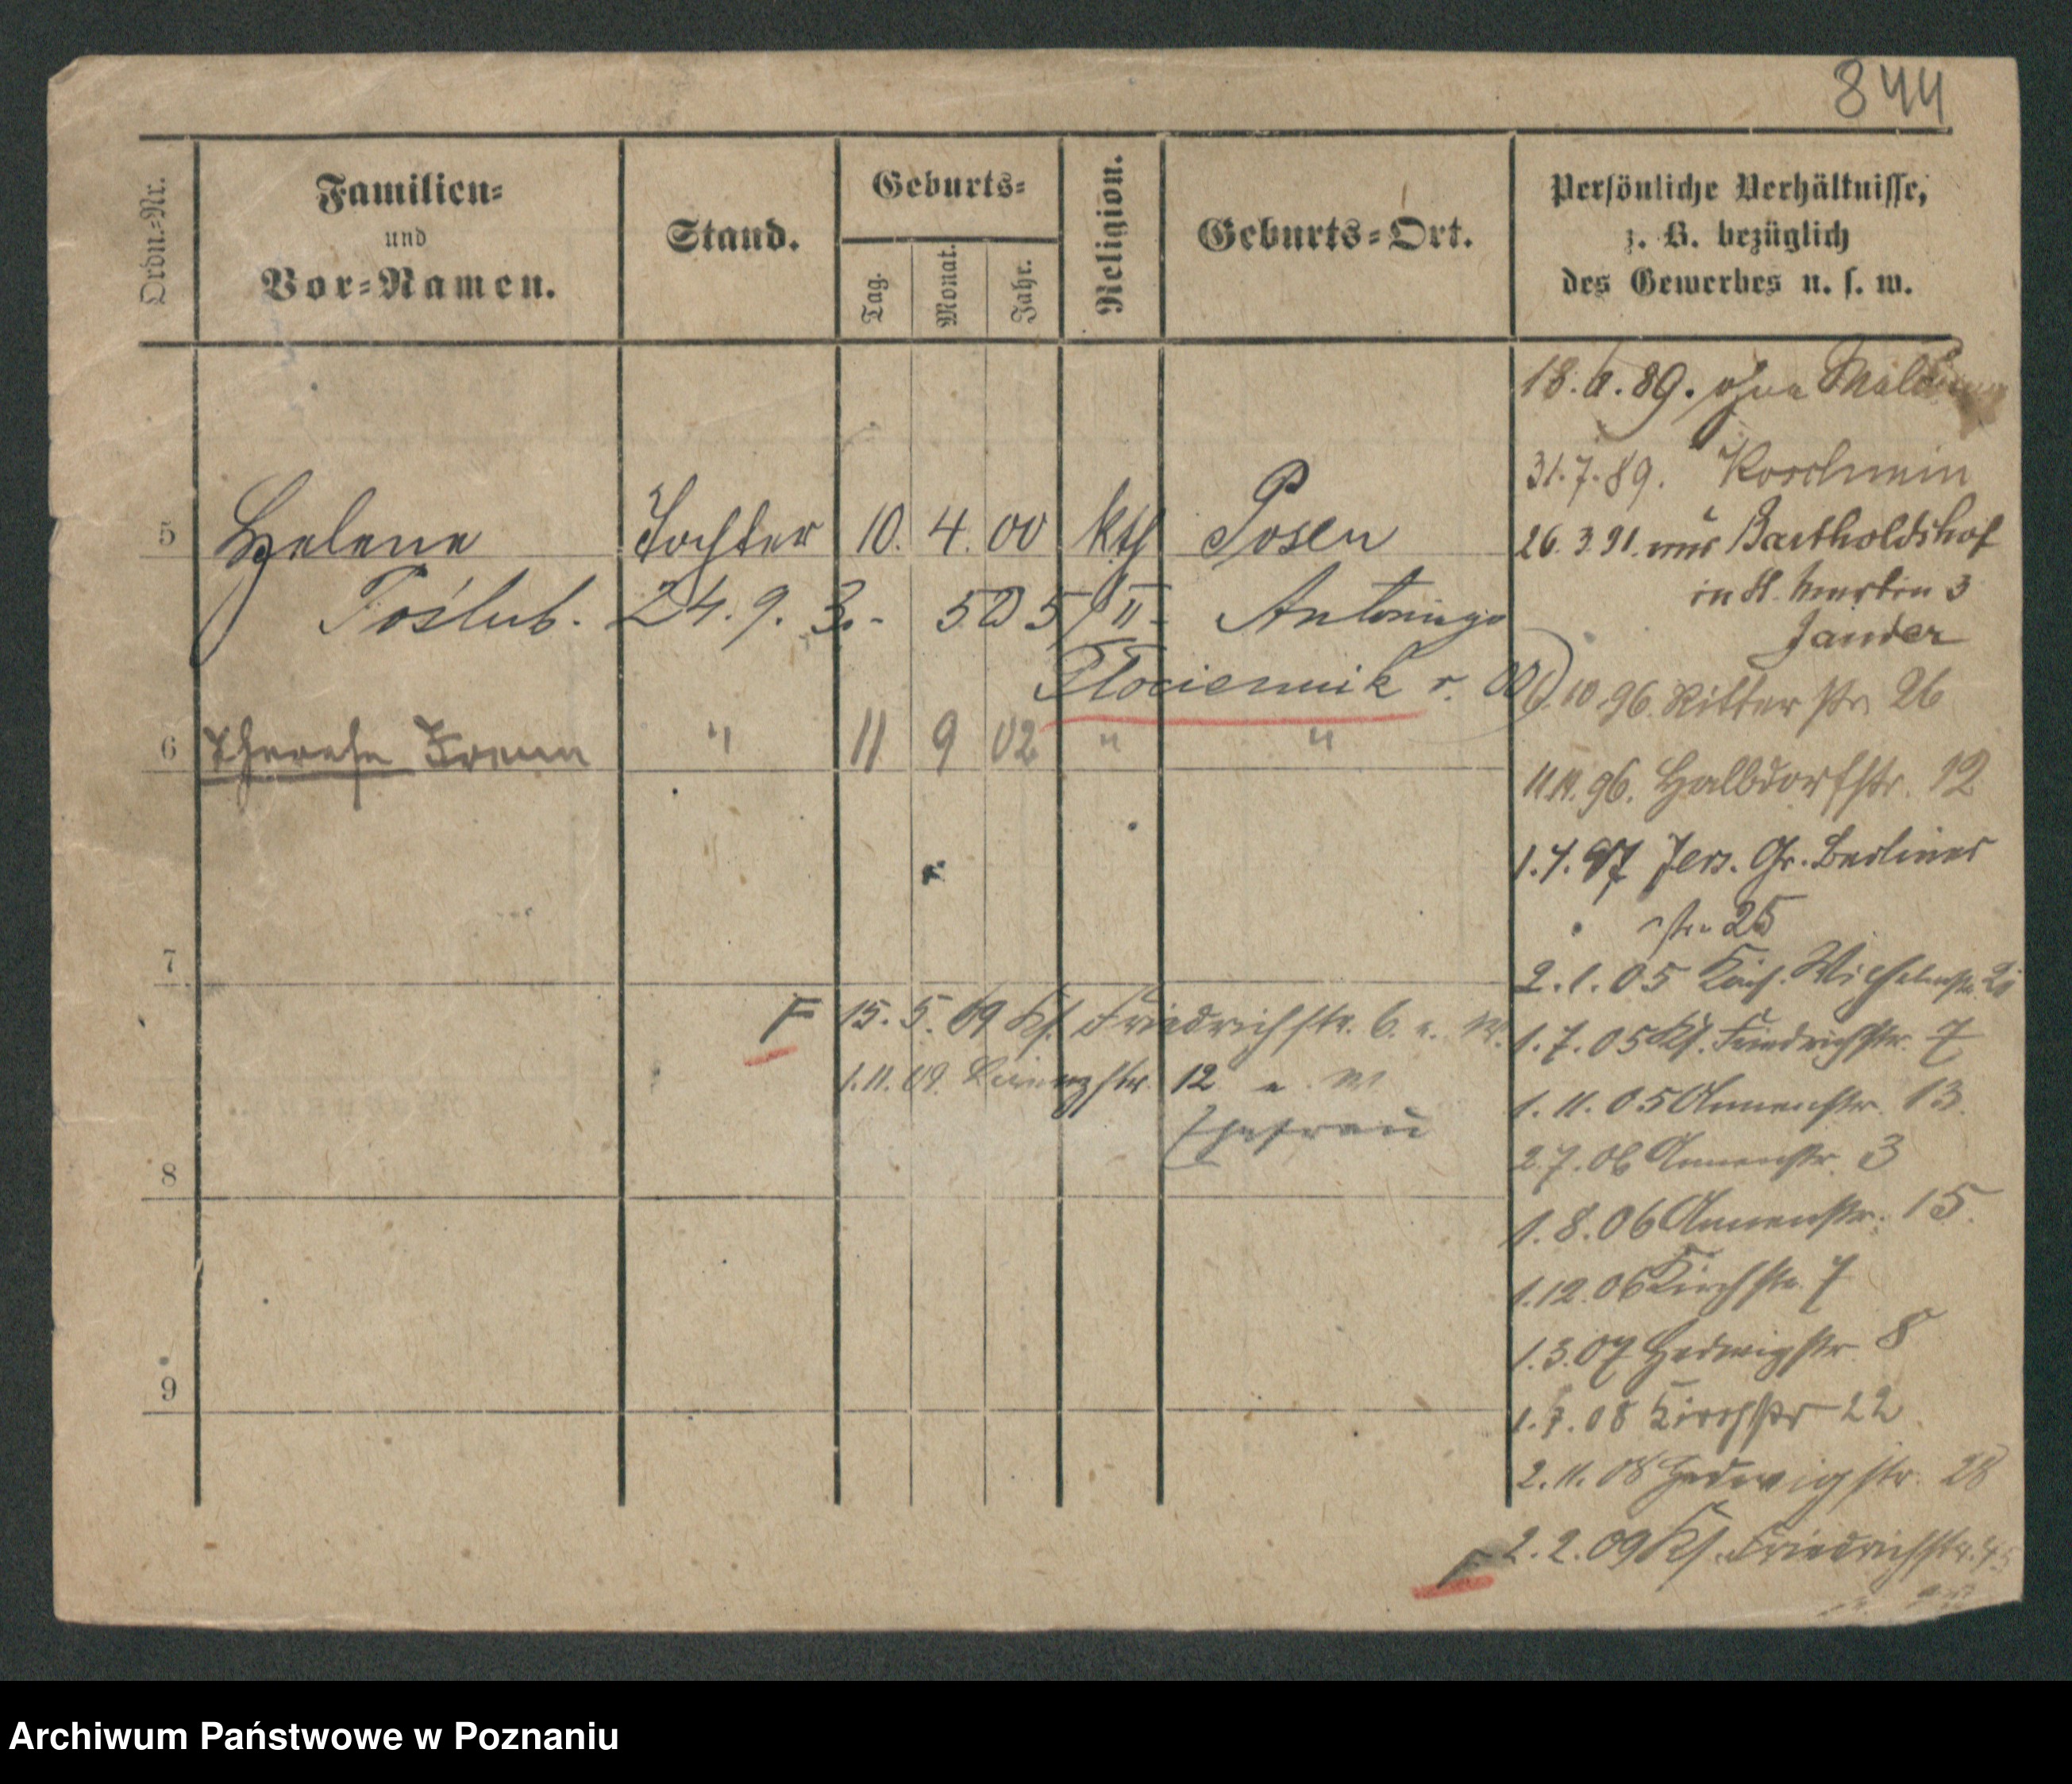 844
Ordn.-Nr.
Familien-
und
Vor-Namen.
Stand.
Geburts-
Tag.
Monat.
Jahr.
Religion.
Geburts-Ort.
Persönliche Verhältnisse,
z. B. bezüglich
des Gewerbes u. s. w.
18. 6. 89. ohne
31. 7. 89. Koschmin
5 Helene Tochter 10. 4. 00 kth Posen
26. 3. 91. aus Bartholdshof
Poślub. 24. 9. 5 II - Antoniego
in St. Martin 3
Jander
Płóciennik r. 00
6. 10. 96. Ritterstr. 26
6 Therese Irena " 11 9 02 " "
11. 11. 96. Halbdorfstr. 12
1. 7. 97 Jers. Gr. Berliner
str. 25
7
2. 1. 05 Kais. Wilhelmstr.
F 15. 5. 09 Kf. Friedrichstr. 6.
1. 7. 05 Kf. Friedrichstr. 7
1. 11. 09 12
1. 11. 05 Annenstr. 13
Ehefrau
2. 7. 06 Annenstr. 3
8
1. 8. 06 Annenstr. 15.
1. 12. 06 Kirchstr. 7
1. 3. 07 Hedwigstr. 8
9
1. 7. 08 Kirchstr 22
2. 11. 08 Hedwigstr. 28
F 2. 2. 09 Kf. Friedrichstr.
Archiwum Państwowe w Poznaniu